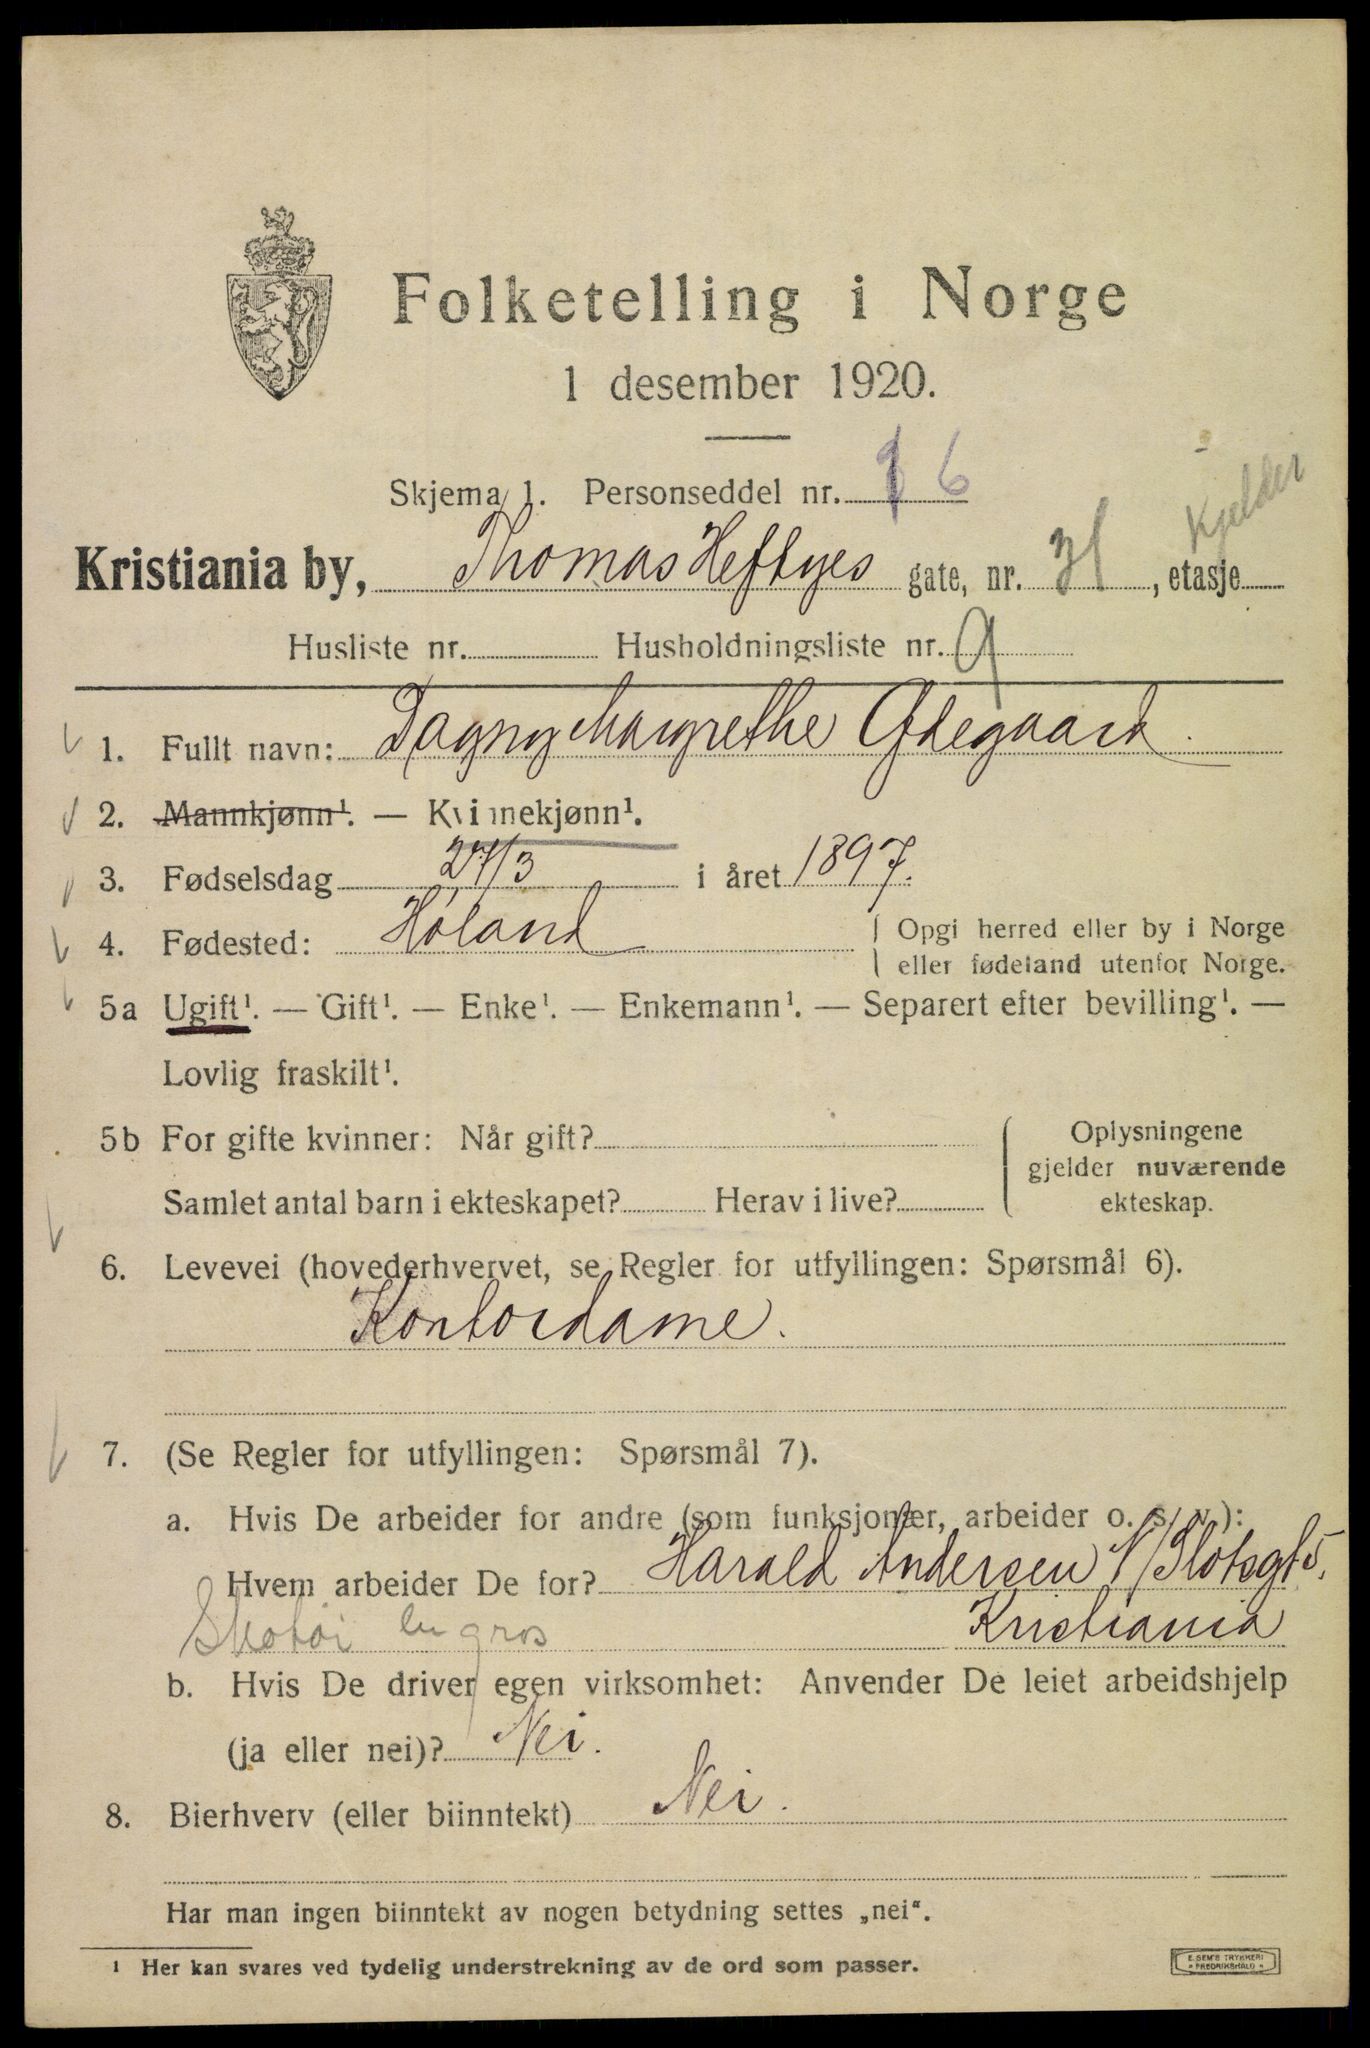 Folketelling i Norge
1 desember 1920.
Skjema 1. Personseddel nr. 6
Kristiania by, Thomas Heftyes gate, nr. 31, etasje Kjelder
Husliste nr. Husholdningsliste nr. 9
1. Fullt navn: Dagny Margrethe Ødegaard.
2. Mannkjønn¹. — Kvinnekjønn¹.
3. Fødselsdag 27/3 i året 1897.
4. Fødested: Høland Opgi herred eller by i Norge
eller fødeland utenfor Norge.
5a Ugift¹. — Gift¹. — Enke¹. — Enkemann¹. — Separert efter bevilling¹. —
Lovlig fraskilt¹.
5b For gifte kvinner: Når gift? Oplysningene
gjelder nuværende
Samlet antal barn i ekteskapet? Herav i live? ekteskap.
6. Levevei (hovederhvervet, se Regler for utfyllingen: Spørsmål 6).
Kontordame.
7. (Se Regler for utfyllingen: Spørsmål 7).
a. Hvis De arbeider for andre (som funksjonær, arbeider o. s. v.):
Hvem arbeider De for? Harald Andersen N/Slotsgt 5,
Skotøi en gros Kristiania
b. Hvis De driver egen virksomhet: Anvender De leiet arbeidshjelp
(ja eller nei)? Nei.
8. Bierhverv (eller biinntekt) Nei.
Har man ingen biinntekt av nogen betydning settes „nei“.
¹ Her kan svares ved tydelig understrekning av de ord som passer.
E. SEM'S TRYKKERI
FREDRIKSHALD